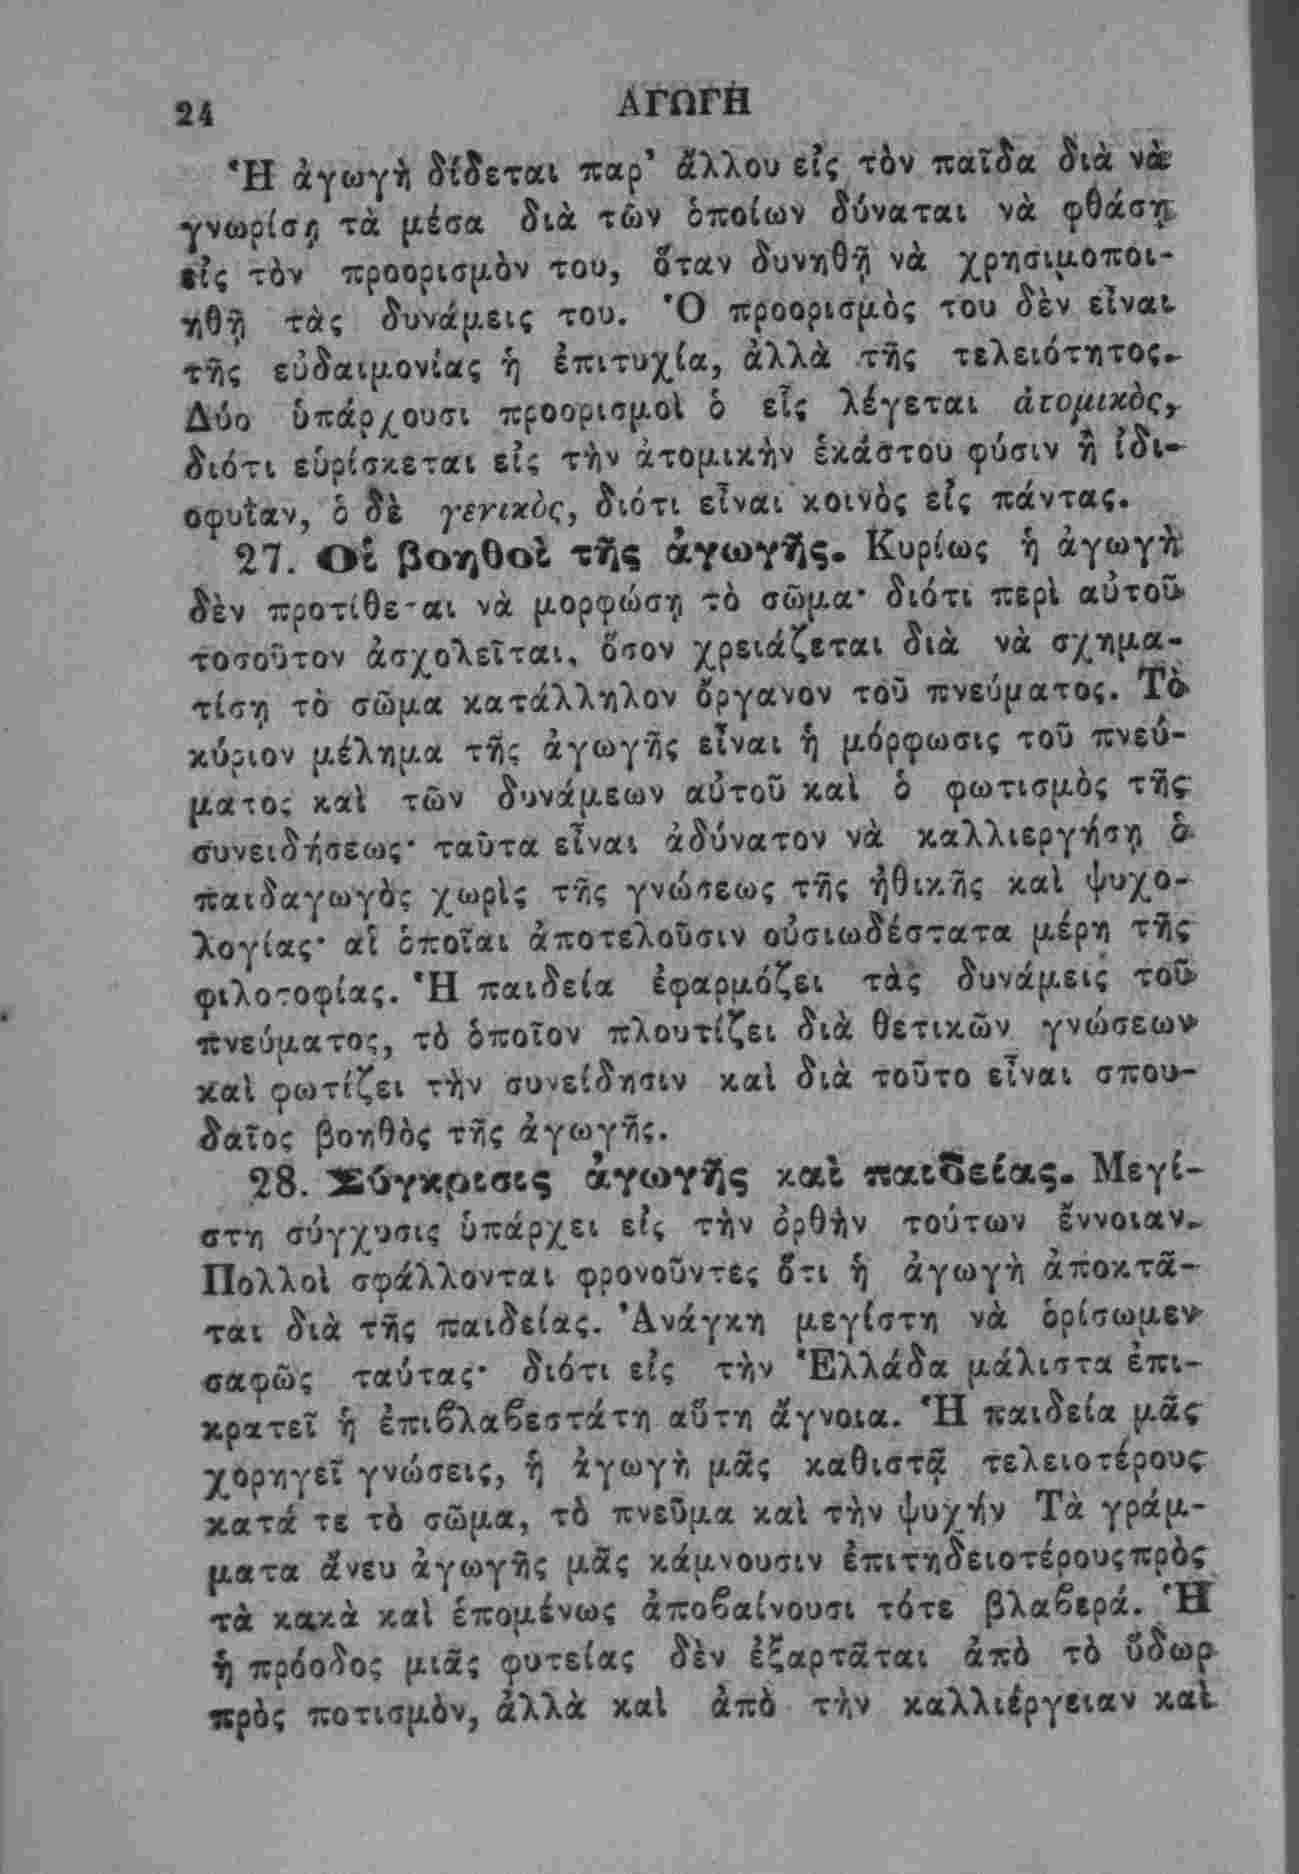 24
ΑΓΩΓΗ
Ἡ ἀγωγὴ δίδεται παρ' ἄλλου εἰς τὸν παῖδα διὰ νὰ
γνωρίσῃ τὰ μέσα διὰ τῶν ὁποίων δύναται νὰ φθάσῃ
εἰς τὸν προορισμὸν του, ὅταν δυνηθῇ νὰ χρησιμοποι-
ηθῇ τὰς δυνάμεις του. Ὁ προορισμὸς του δὲν εἶναι
τῆς εὐδαιμονίας ἡ ἐπιτυχία, ἀλλὰ τῆς τελειότητος.
Δύο ὑπάρχουσι προορισμοὶ ὁ εἷς λέγεται ἀτομικὸς,
διότι εὑρίσκεται εἰς τὴν ἀτομικὴν ἑκάστου φύσιν ἢ ἰδι-
οφυΐαν, ὁ δὲ γενικὸς, διότι εἶναι κοινὸς εἰς πάντας.
27. Οἱ βοηθοὶ τῆς ἀγωγῆς. Κυρίως ἡ ἀγωγὴ
δὲν προτίθεται νὰ μορφώσῃ τὸ σῶμα· διότι περὶ αὐτοῦ
τοσοῦτον ἀσχολεῖται, ὅσον χρειάζεται διὰ νὰ σχημα-
τίσῃ τὸ σῶμα κατάλληλον ὄργανον τοῦ πνεύματος. Τὸ
κύριον μέλημα τῆς ἀγωγῆς εἶναι ἡ μόρφωσις τοῦ πνεύ-
ματος καὶ τῶν δυνάμεων αὐτοῦ καὶ ὁ φωτισμὸς τῆς
συνειδήσεως· ταῦτα εἶναι ἀδύνατον νὰ καλλιεργήσῃ ὁ
παιδαγωγὸς χωρὶς τῆς γνώσεως τῆς ἠθικῆς καὶ ψυχο-
λογίας· αἱ ὁποῖαι ἀποτελοῦσιν οὐσιωδέστατα μέρη τῆς
φιλοσοφίας. Ἡ παιδεία ἐφαρμόζει τὰς δυνάμεις τοῦ
πνεύματος, τὸ ὁποῖον πλουτίζει διὰ θετικῶν γνώσεων
καὶ φωτίζει τὴν συνείδησιν καὶ διὰ τοῦτο εἶναι σπου-
δαῖος βοηθὸς τῆς ἀγωγῆς.
28. Σύγκρισις ἀγωγῆς καὶ παιδείας. Μεγί-
στη σύγχυσις ὑπάρχει εἰς τὴν ὀρθὴν τούτων ἔννοιαν.
Πολλοὶ σφάλλονται φρονοῦντες ὅτι ἡ ἀγωγὴ ἀποκτᾶ-
ται διὰ τῆς παιδείας. Ἀνάγκη μεγίστη νὰ ὁρίσωμεν
σαφῶς ταύτας· διότι εἰς τὴν Ἑλλάδα μάλιστα ἐπι-
κρατεῖ ἡ ἐπιβλαβεστάτη αὕτη ἄγνοια. Ἡ παιδεία μᾶς
χορηγεῖ γνώσεις, ἡ ἀγωγὴ μᾶς καθιστᾷ τελειοτέρους
κατά τε τὸ σῶμα, τὸ πνεῦμα καὶ τὴν ψυχήν Τὰ γράμ-
ματα ἄνευ ἀγωγῆς μᾶς κάμνουσιν ἐπιτηδειοτέρουςπρὸς
τὰ κακὰ καὶ ἑπομένως ἀποβαίνουσι τότε βλαβερά. Ἡ
ἡ πρόοδος μιᾶς φυτείας δὲν ἐξαρτᾶται ἀπὸ τὸ ὕδωρ
πρὸς ποτισμὸν, ἀλλὰ καὶ ἀπὸ τὴν καλλιέργειαν καὶ